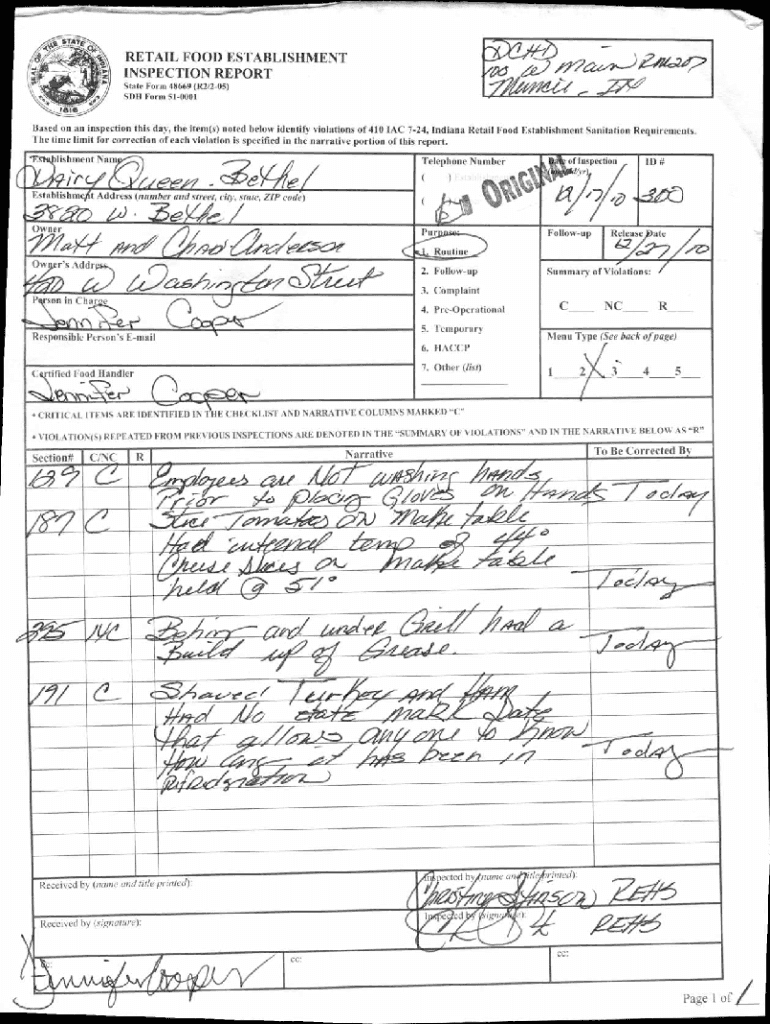 SEAL OF THE STATE OF INDIANA
1816
RETAIL FOOD ESTABLISHMENT
INSPECTION REPORT
State Form 48669 (R2/2-05)
SDH Form 51-0001
DCHD
100 W Main RM207
Muncie, IN
Based on an inspection this day, the item(s) noted below identify violations of 410 IAC 7-24, Indiana Retail Food Establishment Sanitation Requirements.
The time limit for correction of each violation is specified in the narrative portion of this report.
Establishment Name
Dairy Queen - Bethel
Telephone Number
( ) Establishment
(
ORIGINAL
Date of Inspection
(mm/dd/yr)
12/17/10
ID #
300
Establishment Address (number and street, city, state, ZIP code)
3820 W. Bethel
Owner
Matt and Chad Anderson
Purpose:
1. Routine
2. Follow-up
3. Complaint
4. Pre-Operational
5. Temporary
6. HACCP
7. Other (list)
Follow-up
Release Date
12/27/10
Owner's Address
W Washington Street
Summary of Violations:
C____ NC____ R____
Person in Charge
Jennifer Cooper
Responsible Person's E-mail
Menu Type (See back of page)
1____2 X 3____4____5____
Certified Food Handler
Jennifer Cooper
• CRITICAL ITEMS ARE IDENTIFIED IN THE CHECKLIST AND NARRATIVE COLUMNS MARKED "C"
• VIOLATION(S) REPEATED FROM PREVIOUS INSPECTIONS ARE DENOTED IN THE "SUMMARY OF VIOLATIONS" AND IN THE NARRATIVE BELOW AS "R"
Section# C/NC R Narrative To Be Corrected By
129 C Employees are Not washing hands
Prior to placing Gloves on Hands Today
187 C Slice Tomatoes on Make table
Had internal temp of 44°
Cheese Slices on Make table
held @ 51° Today
295 NC Behin and under Grill had a
Build up of Grease. Today
191 C Shaved Turkey and Ham
Had No date mark Date
that allows anyone to know
How long it has been in Today
Refridgnation
Received by (name and title printed):
Inspected by (name and title printed):
Christina Stinson REHS
Received by (signature):
Inspected by (signature):
REHS
X Jennifer Cooper
cc:
cc:
cc:
Page 1 of 1